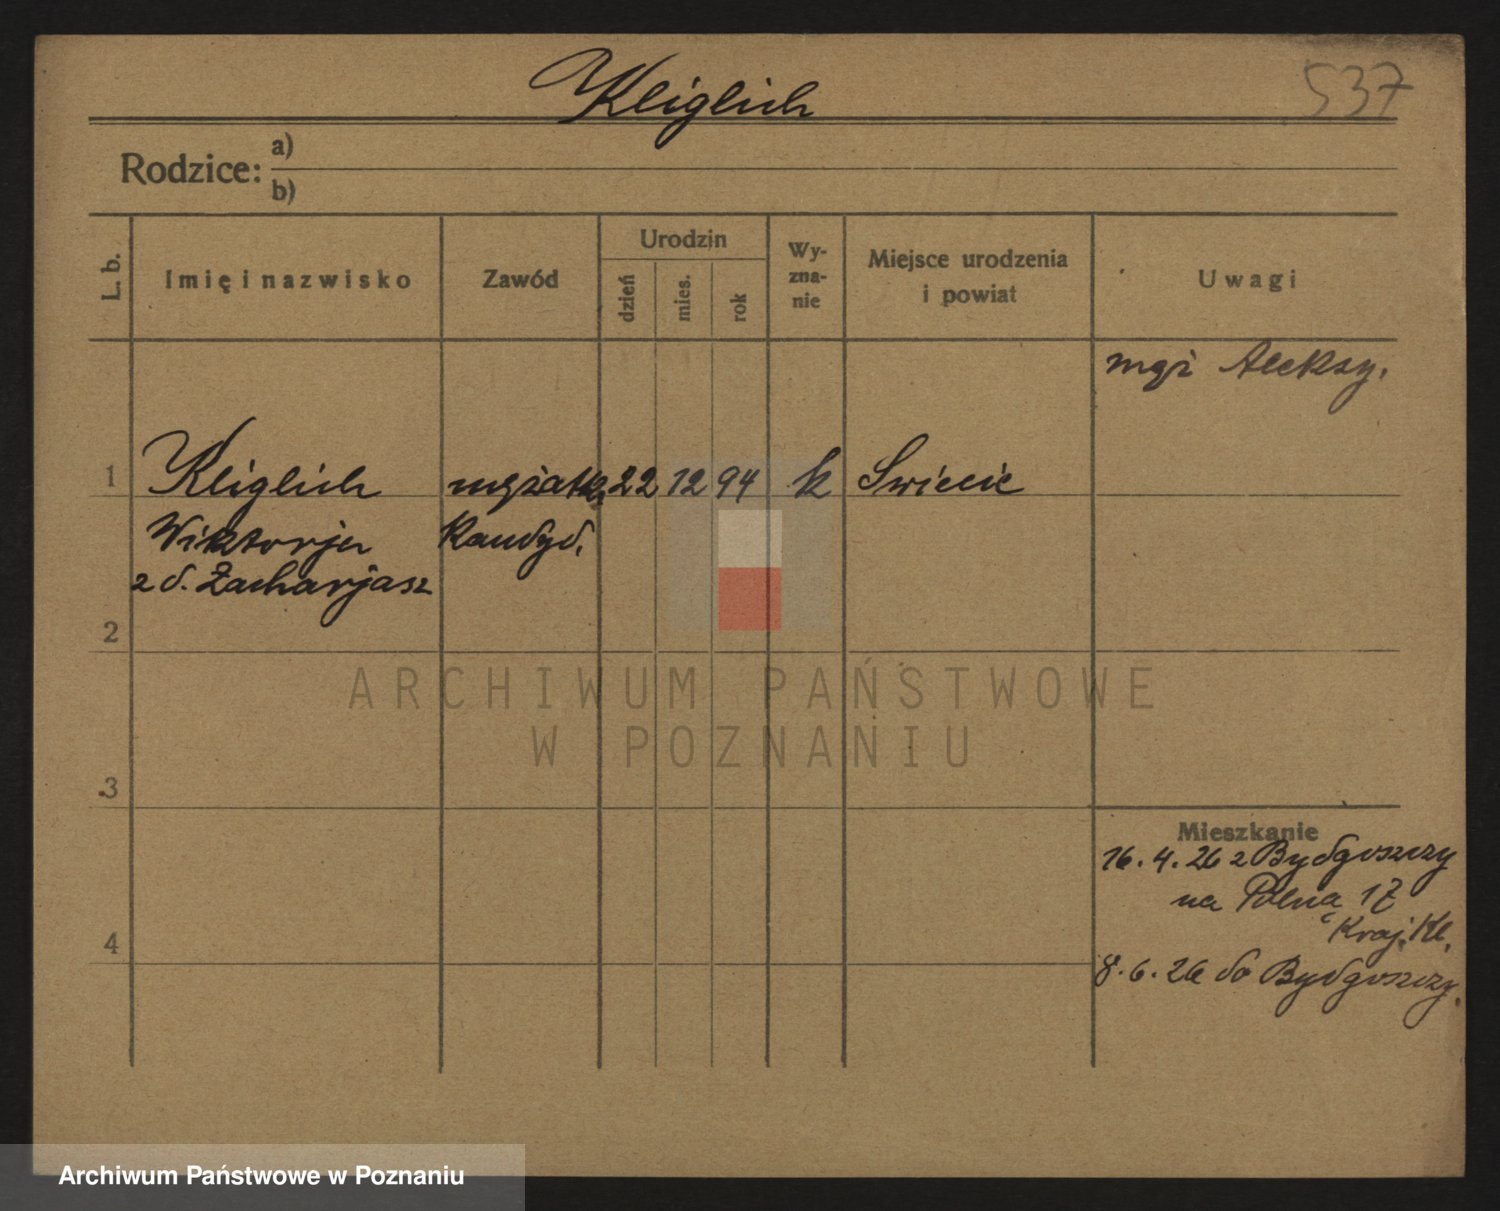 Kliglich 537
Rodzice: a)
b)
L. b. Imię i nazwisko Zawód Urodzin dzień mies. rok Wy-zna-nie Miejsce urodzenia i powiat Uwagi
mąż Aleksy.
1 Kliglich mężatka 22 12 94 k Świecie
Wiktorja Kandyd.
z d. Zacharjasz
2
ARCHIWUM PAŃSTWOWE
W POZNANIU
3
Mieszkanie
16.4.26 z Bydgoszczy
na Polna 17
Kraj. Kl.
4
8.6.26 do Bydgoszczy.
Archiwum Państwowe w Poznaniu